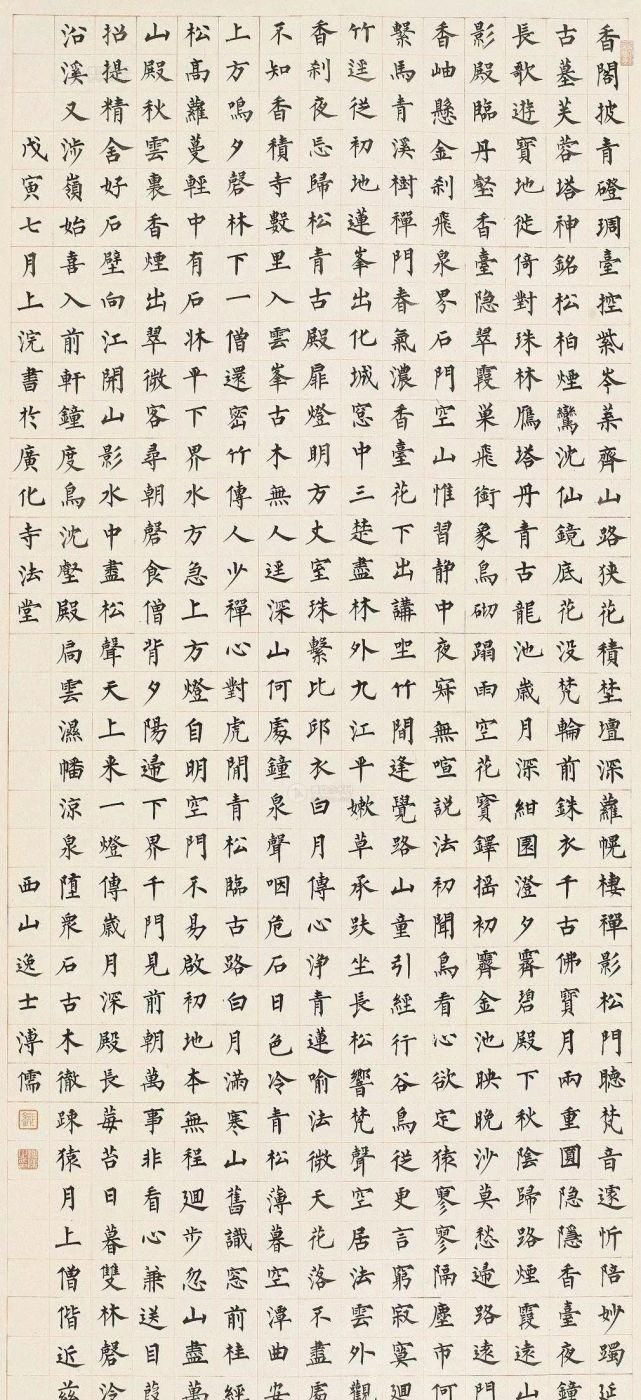 香閣披青磴琱臺控紫岑葉齊山路狹花積埜壇深蘿幌棲禪影松門聽梵音遽忻陪妙躅延
古墓芙蓉塔神銘松柏煙鸞沈仙鏡底花没梵輪前銖衣千古佛寶月兩重圓隐隱香臺夜鐘
長歌遊寶地徙倚對珠林鴈塔丹青古龍池歲月深紺園澄夕霽碧殿下秋陰歸路煙霞遠山
影殿臨丹壑香臺隐翠霞巢飛銜象鳥砌蹋雨空花寶鐸摇初霽金池映晚沙莫愁歸路遠門
香岫懸金刹飛泉界石門空山惟習静中夜寂無喧説法初聞鳥看心欲定猿寥寥隔塵市何
繫馬青溪樹禪門春氣濃香臺花下出講坐竹間逢覺路山童引經行谷鳥從更言窮寂寞迴
竹逕從初地蓮峯出化城窓中三楚盡林外九江平嫰草承趺坐長松響梵聲空居法雲外觀
香刹夜忘歸松青古殿扉燈明方丈室珠繫比邱衣白月傳心淨青蓮喻法微天花落不盡處
不知香積寺數里入雲峯古木無人逕深山何處鐘泉聲咽危石日色冷青松薄暮空潭曲安
上方鳴夕磬林下一僧還密竹傳人少禪心對虎閒青松臨古路白月滿寒山舊識窓前桂經
松高蘿蔓輕中有石牀平下界水方急上方燈自明空門不易啟初地本無程迴步忽山盡萬
山殿秋雲裏香煙出翠微客尋朝磬食僧背夕陽歸下界千門見前朝萬事非看心兼送目葭
招提精舍好石壁向江開山影水中盡松聲天上来一燈傳歲月深殿長莓苔日暮雙林磬泠
沿溪又涉嶺始喜入前軒鐘度鳥沈壑殿扃雲濕幡涼泉墮衆石古木徹疎猿月上僧偕近茲
戊寅七月上浣書於廣化寺法堂 西山逸士溥儒